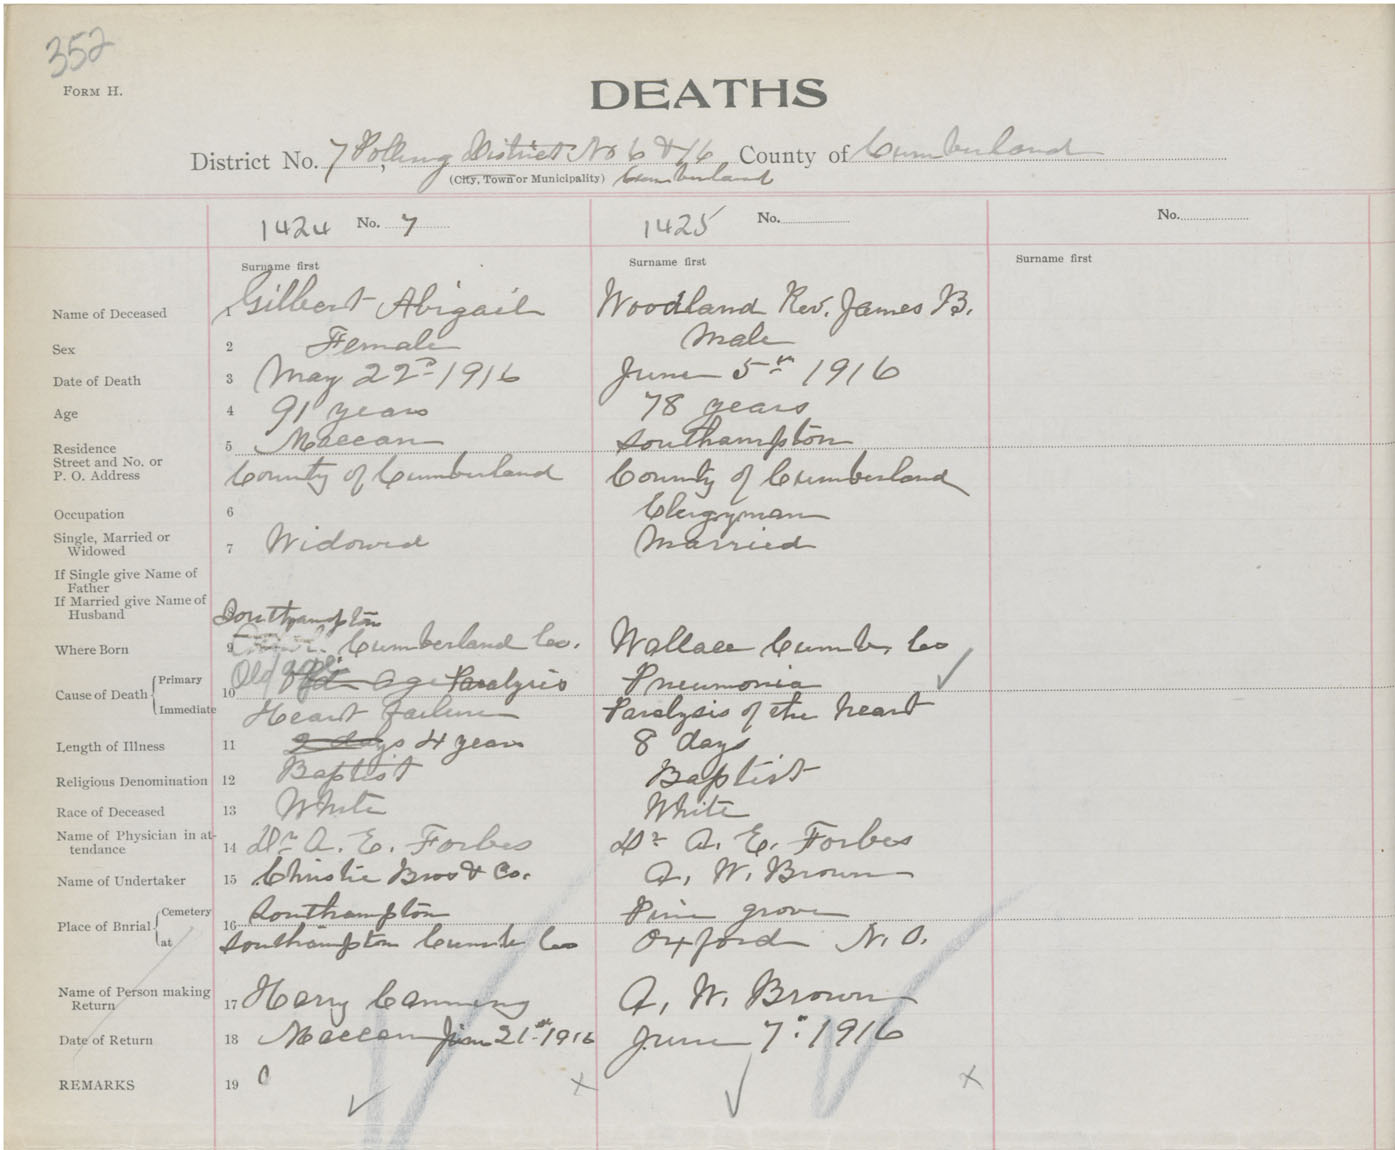 352
FORM H.
DEATHS
District No. 7, Polling District No 6 & 16 County of Cumberland
(City, Town or Municipality) Cumberland
1424 No. 7 1425 No. No.
Surname first Surname first Surname first
Name of Deceased 1 Gilbert Abigail Woodland Rev. James B.
Sex 2 Female Male
Date of Death 3 May 22nd 1916 June 5th 1916
Age 4 91 years 78 years
Residence 5 Maccan Southampton
Street and No. or
P. O. Address County of Cumberland County of Cumberland
Occupation 6 Clergyman
Single, Married or
Widowed 7 Widowed Married
If Single give Name of
Father
If Married give Name of
Husband
Southampton
Where Born 9 Cumberland Co. Wallace Cumb. Co
Cause of Death { Primary 10 Old age age Paralysis Pneumonia
Immediate Heart Failure Paralysis of the heart
Length of Illness 11 2 days 4 years 8 days
Religious Denomination 12 Baptist Baptist
Race of Deceased 13 White White
Name of Physician in at-
tendance 14 Dr A. E. Forbes Dr A. E. Forbes
Name of Undertaker 15 Christie Bros & Co. A. W. Brown
Place of Burial { Cemetery 16 Southampton Pine grove
at Southampton Cumb Co Oxford N. S.
Name of Person making
Return 17 Harry Canning A. W. Brown
Date of Return 18 Maccan June 21st 1916 June 7th 1916
REMARKS 19